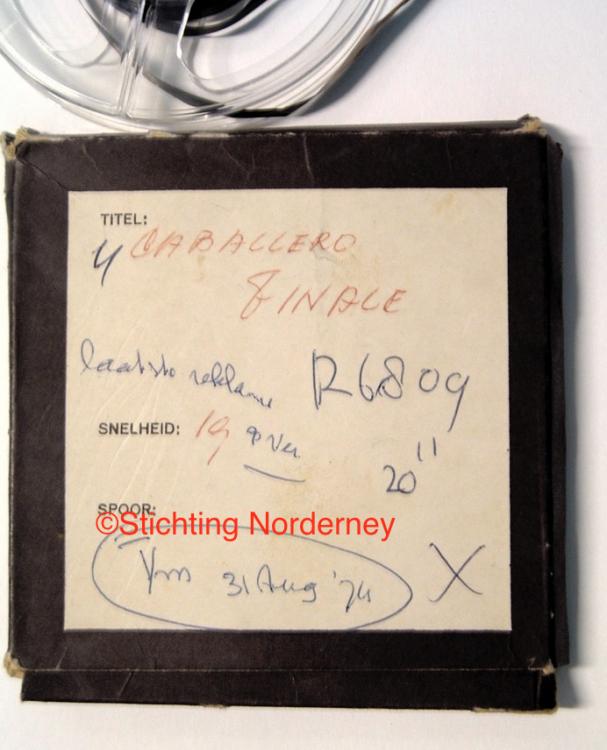 TITEL:
4 CABALLERO
FINALE
laatste reklame R6809
SNELHEID: 19
20"
SPOOR:
©Stichting Norderney
t/m 31 Aug '74 X